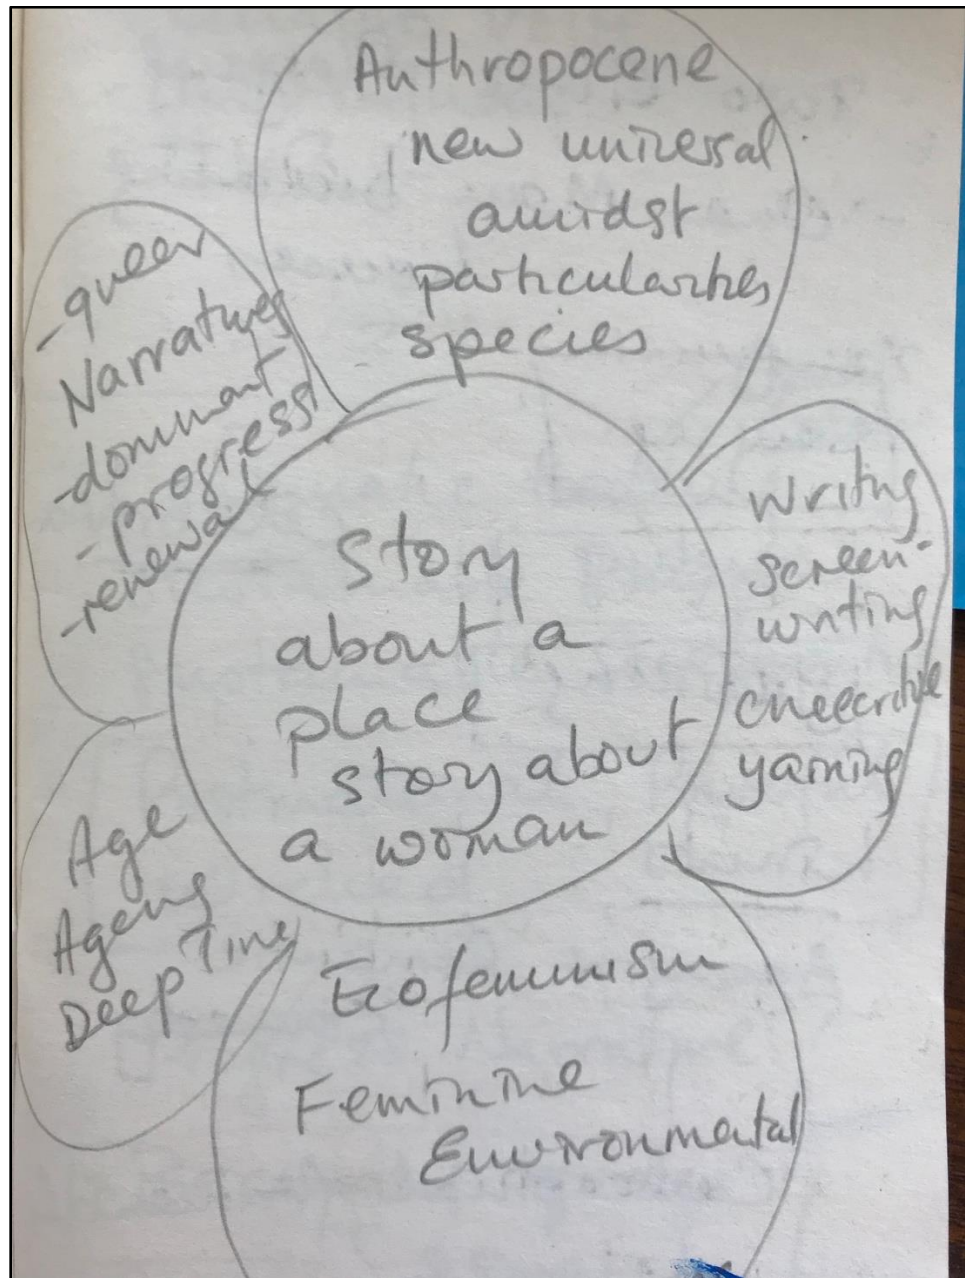 Anthropocene
new universal
amidst
particularities
species
-queer
Narratives
-dominant
-progress
-renewal
Story
about a
place
story about
a woman
writing
screen-
writing
yarning
Age
Ageing
Deep Time
Ecofeminism
Feminine
Environmental